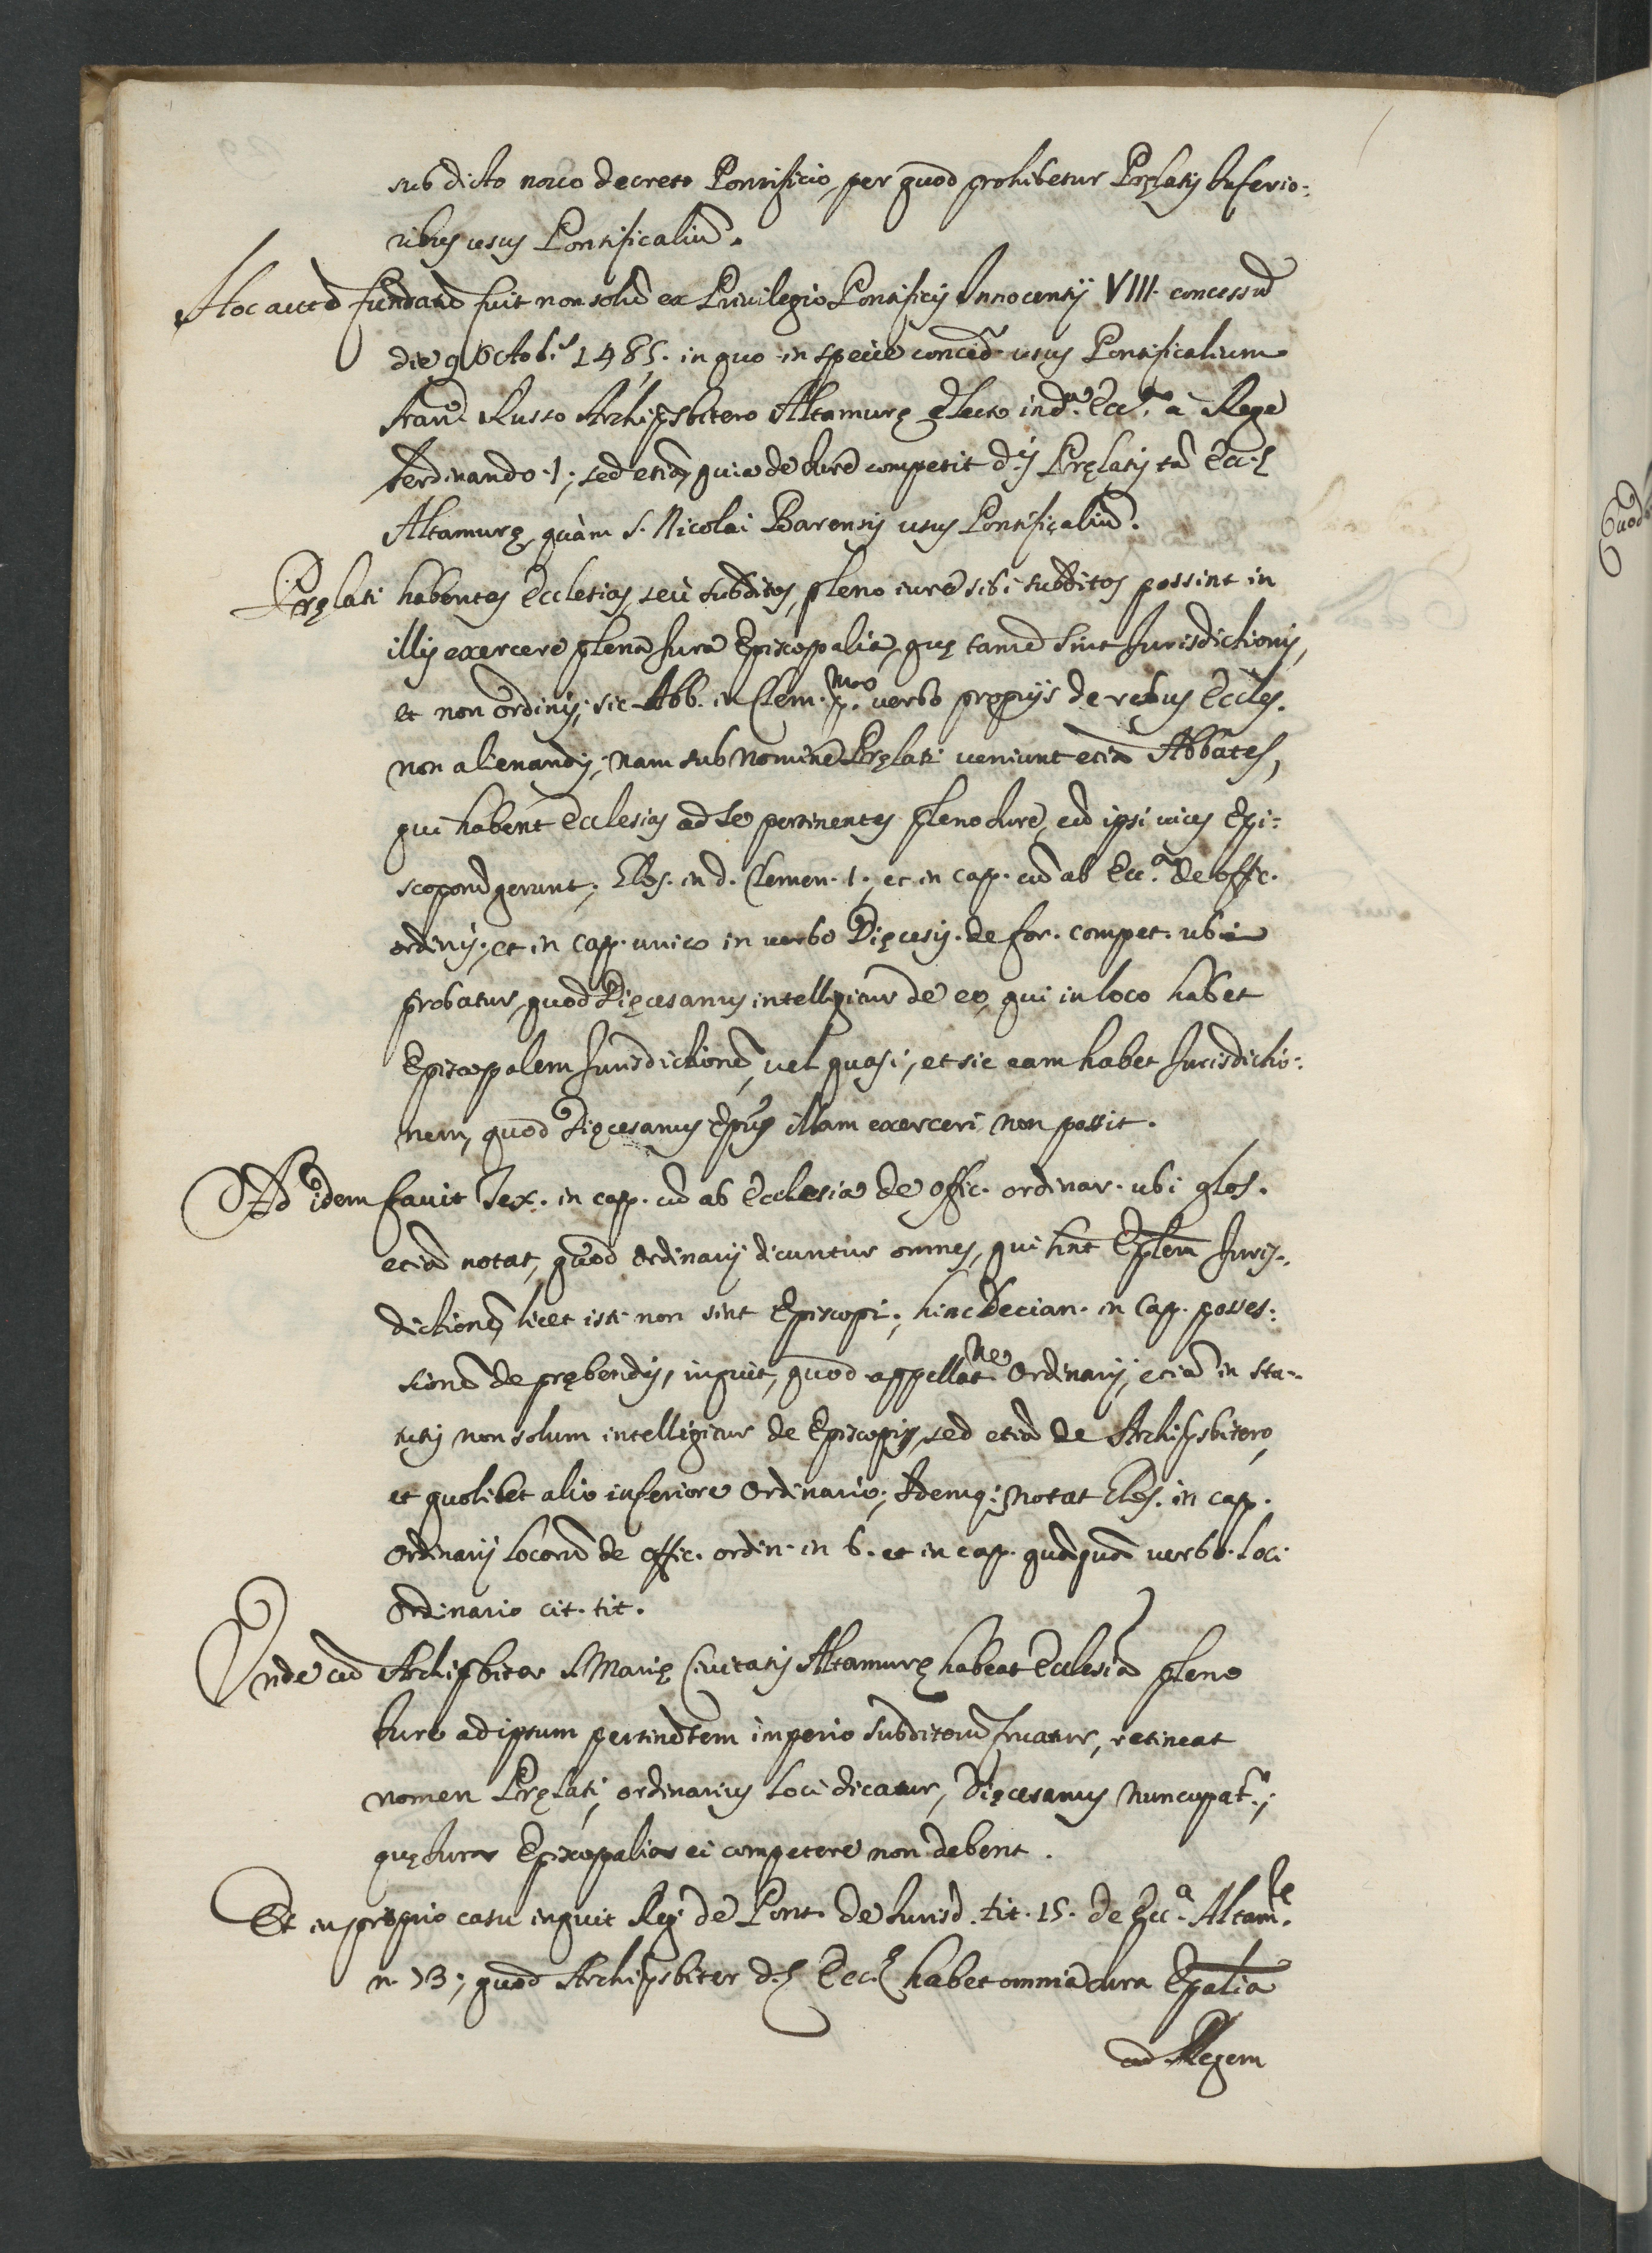 sub dicto nouo decreto Pontificio, per quod prohibetur Prȩlatis Inferio:
ribus usus Pontificaliũ.
Hoc autẽ fundatũ fuit non solũ ex Priuilegio Pontificis Innocentij VIII. concessũ
die 9 Octobris 1485. in quo in specie conced.r usus Pontificalium
Fran.co Russo Archipsbitero Altamurȩ electo in d.a Ecc.a à Rege
Ferdinando 1; sed etiã, quia de Iure competit d.is Prȩlatis tã Ecc.ȩ
Altamurȩ, quàm S. Nicolai Barensis usus Pontificaliũ.
Prȩlati habentes Ecclesias, seù subditos, pleno iure sibi subditos possint in
illis exercere plena Iura Episcopalia, quȩ tamẽ sint Iurisdictionis,
et non ordinis; sic Abb. in Clem. p.mo verbo propriis de rebus Eccles.
non alienandis; nam sub nomine Prȩlati veniunt etiã Abbates,
qui habent Ecclesias ad se pertinentes pleno Iure, cũ ipsi uices Epi:
scoporũ gerunt; Glos. in d. Clemen. 1., et in cap. cũ ab Ecc.a de offic.
ordinis, et in cap. unico in uerbo Diȩcesis. de for. compet. ubi
probatur, quod Diȩcesanus intelligitur de eo, qui in loco habet
Episcopalem Iurisdictionẽ, uel quasi; et sic eam habet Iurisdictio:
nem, quod Diȩcesanus Epũs illam exerceri non possit.
Ad idem fauit Tex. in cap. cũ ab Ecclesia de offic. ordinar. ubi glos.
etiã notat, quod Ordinarij dicuntur omnes, qui hñt Epĩlem Iuris:
dictionẽ, licet isti non sint Episcopi; hinc Decian. in Cap. posses:
sionũ de prȩbendis, inquit, quod appellat.ne Ordinarij, etiã in sta:
tutis non solum intelligitur de Episcopis, sed etiã de Archipsbitero,
et quolibet alio inferiore Ordinario; Idemq; notat Glos. in cap.
Ordinarij locorũ de offic. ordin. in 6. et in cap. quãquã verbo. loci
Ordinario cit. tit.
Unde cũ Archipsbiter S. Mariȩ Ciuitatis Altamurȩ habeat Ecclesiã pleno
Iure ad ipsum pertinẽtem imperio subditorũ fruatur, retineat
nomen Prȩlati, ordinarius loci dicatur, Diȩcesanus nuncupat.r;
quȩ Iura Episcopalia ei competere non debent.
Et in proprio casu inquit Reg. de Pont. de Iurisd. tit. 15. de Ecc.a Altam.
n. 73; quod Archipsbiter d.ȩ Ecc.ȩ habet omnia Iura Epalia
ad Regem